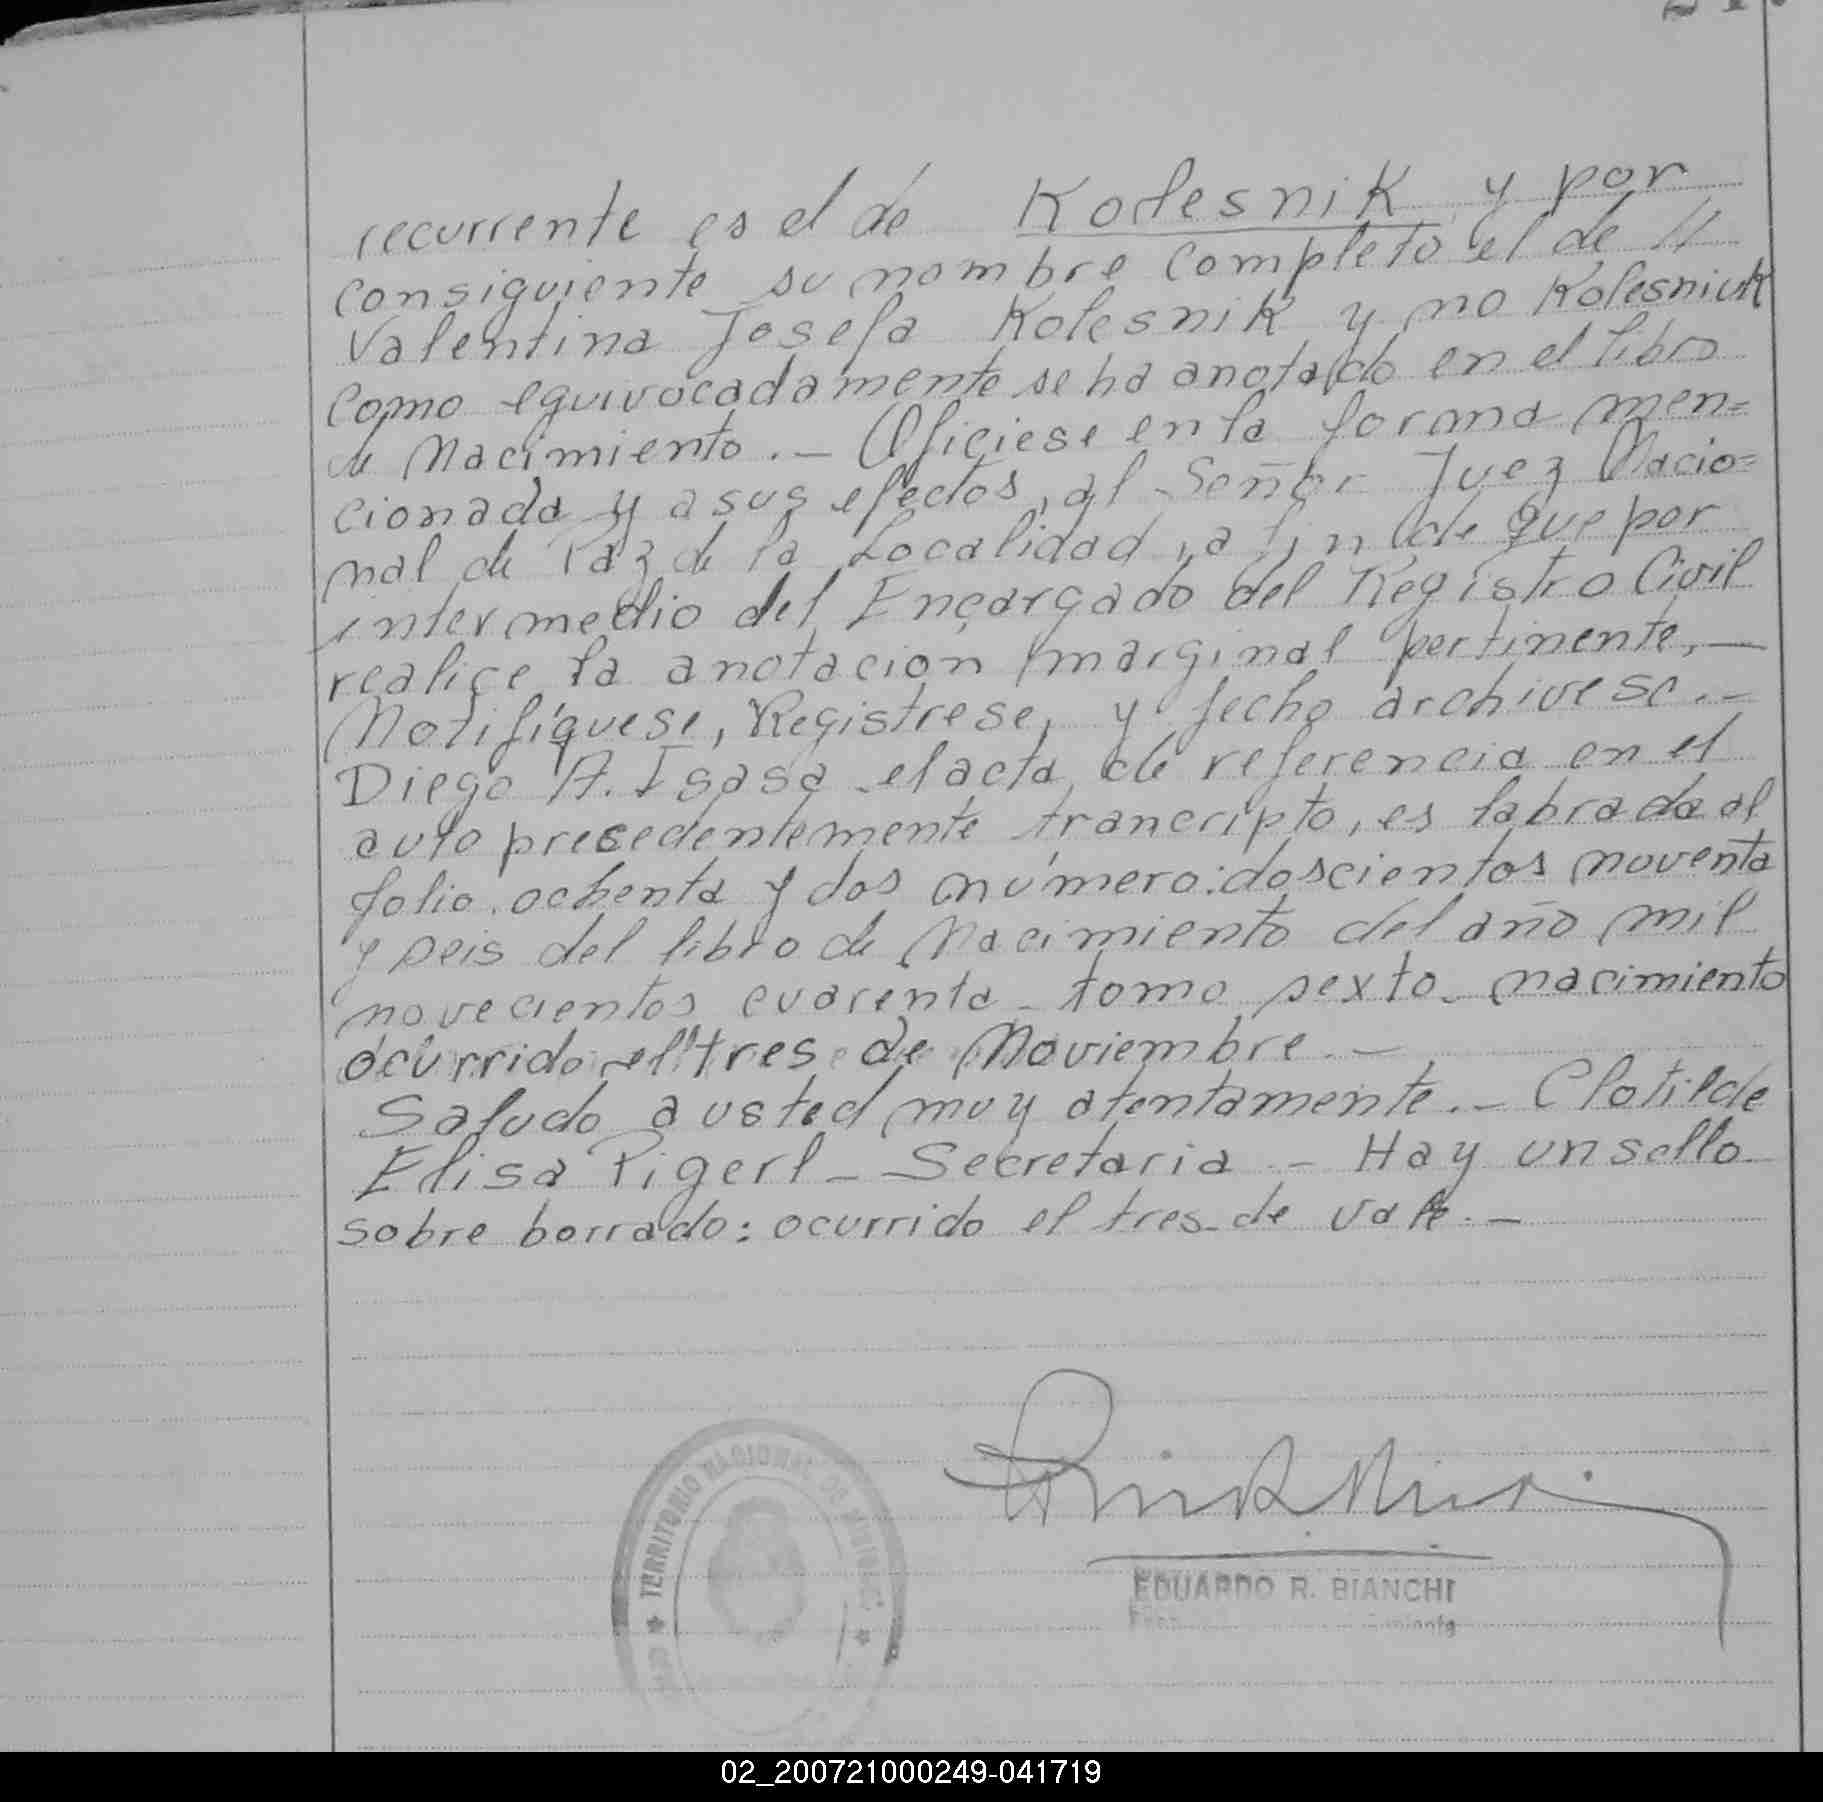 recurrente es el de Kolesnik y por
consiguiente su nombre completo el de //
Valentina Josefa Kolesnik y no Kolesniuk
como equivocadamente se ha anotado en el libro
de Nacimiento.- Ofíciese en la forma men=
cionada y a sus efectos, al Señor Juez Nacio=
nal de Paz de la Localidad, a fin de que por
intermedio del Encargado del Registro Civil
realice la anotacion marginal pertinente,-
Notifíquese, Registrese, y fecho archivese.-
Diego A. Isasa el acta de referencia en el
auto precedentemente trancripto, es labrada al
folio ochenta y dos número: doscientos noventa
y seis del libro de Nacimiento del año mil
novecientos cuarenta - tomo sexto - nacimiento
ocurrido el tres de Noviembre.-
Saludo a usted muy atentamente.- Clotilde
Elisa Pigerl - Secretaria - Hay un sello
sobre borrado: ocurrido el tres de vale.-
TERRITORIO NACIONAL DE MISIONES
EDUARDO R. BIANCHI
02_200721000249-041719